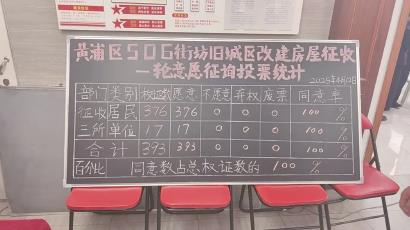 黄浦区506街坊旧城区改建房屋征收
一轮意愿征询投票统计
部门 类别 权证数 愿意 不愿意 弃权 废票 同意率
征收居民 376 376 0 0 0 100 %
三所单位 17 17 0 0 0 100 %
合计 393 393 0 0 0 100 %
百分比 同意数占总权证数的 100 %